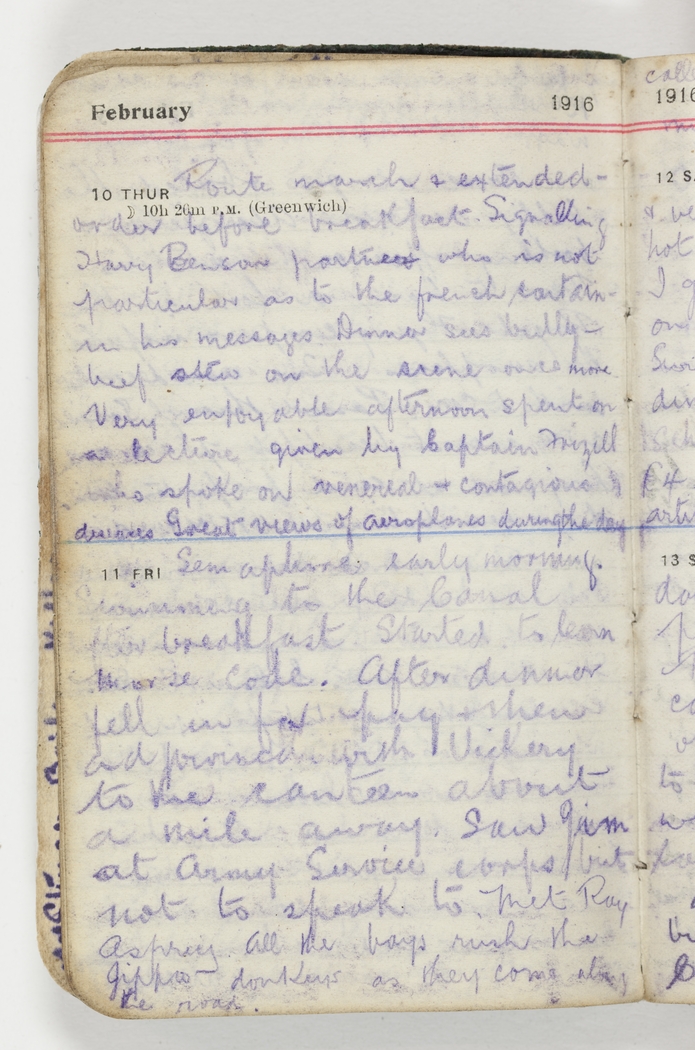 February 1916
10 THUR Route march & extended-
☽ 10h 26m P.M. (Greenwich)
order before breakfast. Signalling
Harry Benson partner who is not
particular as to the french
in his messages Dinner sees bully-
beef stew on the scene once more
Very enjoyable afternoon spent on
a lecture given by Captain Frizell
who spoke on venereal & contagious
diseases Great views of aeroplanes during the day
11 FRI Semaphore early morning.
Swimming to the Canal
breakfast. Started to learn
Morse Code. After dinner
fell in for pay & then
adjourned with Vickery
to the canteen about
a mile away. Saw Jim
at Army Service corps but
not to speak to. Met Ray
Asprey. All the boys rush the
Gippos donkeys as they come along
the road.
1916
12 S
hot
I g
on
din
£4
13 S
to